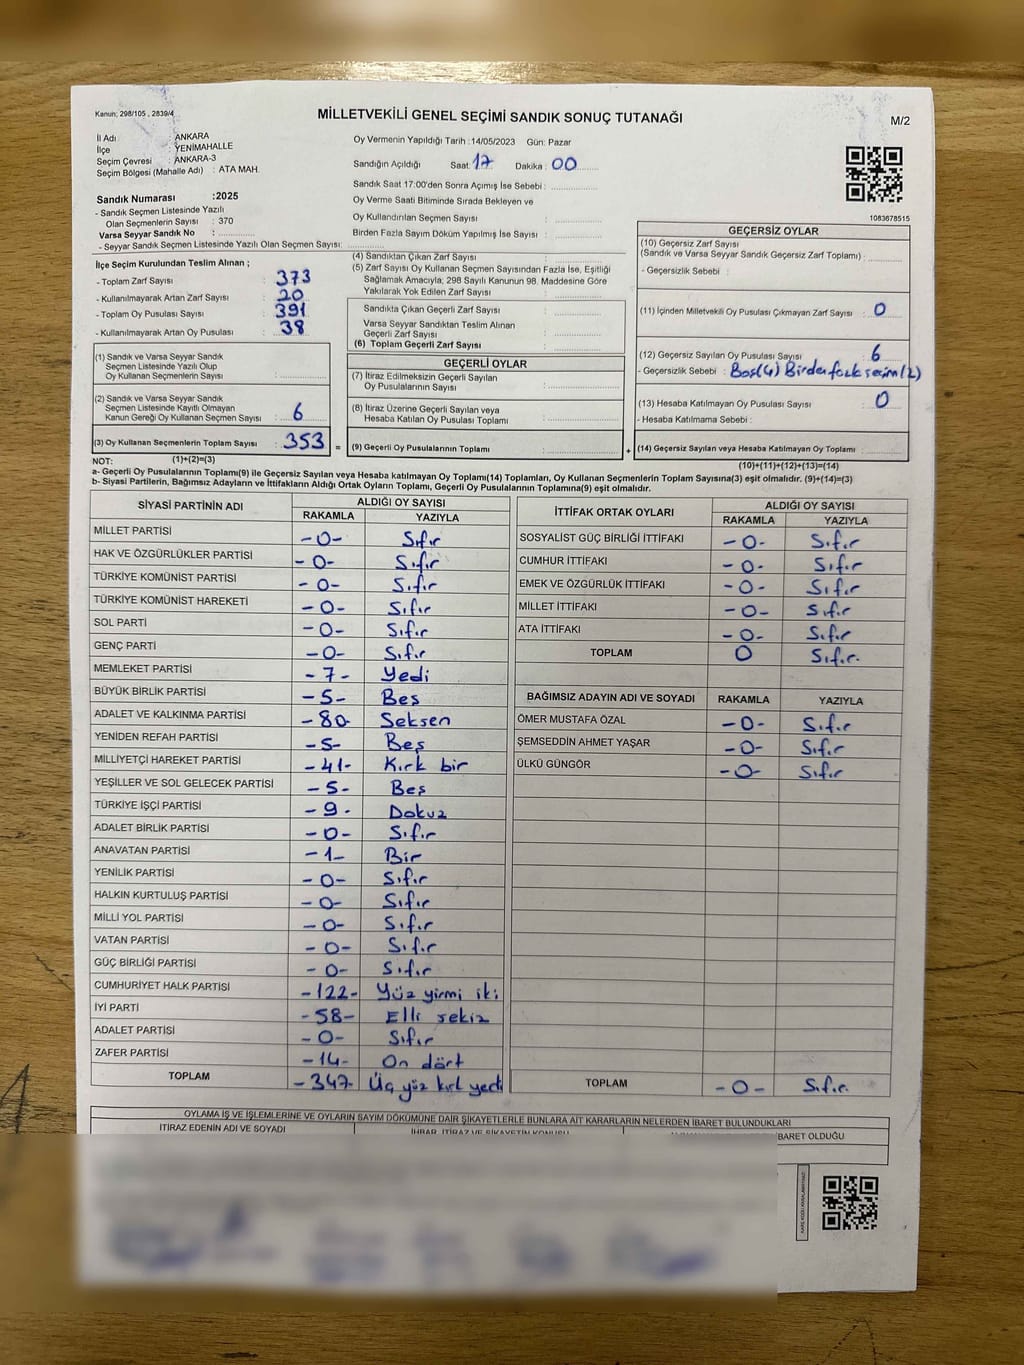 Kanun; 298/105 , 2839/4
MİLLETVEKİLİ GENEL SEÇİMİ SANDIK SONUÇ TUTANAĞI
M/2
İl Adı : ANKARA
İlçe : YENİMAHALLE
Seçim Çevresi : ANKARA-3
Seçim Bölgesi (Mahalle Adı) : ATA MAH.
Oy Vermenin Yapıldığı Tarih : 14/05/2023 Gün: Pazar
Sandığın Açıldığı Saat: 17 Dakika : 00
Sandık Saat 17:00'den Sonra Açımış İse Sebebi :
Oy Verme Saati Bitiminde Sırada Bekleyen ve
Oy Kullandırılan Seçmen Sayısı :
Birden Fazla Sayım Döküm Yapılmış İse Sayısı :
1083678515
Sandık Numarası :2025
- Sandık Seçmen Listesinde Yazılı
Olan Seçmenlerin Sayısı : 370
Varsa Seyyar Sandık No :
- Seyyar Sandık Seçmen Listesinde Yazılı Olan Seçmen Sayısı:
İlçe Seçim Kurulundan Teslim Alınan ;
- Toplam Zarf Sayısı : 373
- Kullanılmayarak Artan Zarf Sayısı : 20
- Toplam Oy Pusulası Sayısı : 391
- Kullanılmayarak Artan Oy Pusulası : 38
(1) Sandık ve Varsa Seyyar Sandık
Seçmen Listesinde Yazılı Olup
Oy Kullanan Seçmenlerin Sayısı :
(2) Sandık ve Varsa Seyyar Sandık
Seçmen Listesinde Kayıtlı Olmayan
Kanun Gereği Oy Kullanan Seçmen Sayısı : 6
(3) Oy Kullanan Seçmenlerin Toplam Sayısı : 353 =
(1)+(2)=(3)
(4) Sandıktan Çıkan Zarf Sayısı :
(5) Zarf Sayısı Oy Kullanan Seçmen Sayısından Fazla İse, Eşitliği
Sağlamak Amacıyla; 298 Sayılı Kanunun 98. Maddesine Göre
Yakılarak Yok Edilen Zarf Sayısı :
Sandıkta Çıkan Geçerli Zarf Sayısı :
Varsa Seyyar Sandıktan Teslim Alınan
Geçerli Zarf Sayısı :
(6) Toplam Geçerli Zarf Sayısı :
GEÇERLİ OYLAR
(7) İtiraz Edilmeksizin Geçerli Sayılan
Oy Pusulalarının Sayısı :
(8) İtiraz Üzerine Geçerli Sayılan veya
Hesaba Katılan Oy Pusulası Toplamı :
(9) Geçerli Oy Pusulalarının Toplamı : +
GEÇERSİZ OYLAR
(10) Geçersiz Zarf Sayısı
(Sandık ve Varsa Seyyar Sandık Geçersiz Zarf Toplamı) :
- Geçersizlik Sebebi :
(11) İçinden Milletvekili Oy Pusulası Çıkmayan Zarf Sayısı : 0
(12) Geçersiz Sayılan Oy Pusulası Sayısı : 6
- Geçersizlik Sebebi : Boş(4) Birden fazla seçim (2)
(13) Hesaba Katılmayan Oy Pusulası Sayısı : 0
- Hesaba Katılmama Sebebi :
(14) Geçersiz Sayılan veya Hesaba Katılmayan Oy Toplamı :
(10)+(11)+(12)+(13)=(14)
NOT:
a- Geçerli Oy Pusulalarının Toplamı(9) ile Geçersiz Sayılan veya Hesaba katılmayan Oy Toplamı(14) Toplamları, Oy Kullanan Seçmenlerin Toplam Sayısına(3) eşit olmalıdır. (9)+(14)=(3)
b- Siyasi Partilerin, Bağımsız Adayların ve İttifakların Aldığı Ortak Oyların Toplamı, Geçerli Oy Pusulalarının Toplamına(9) eşit olmalıdır.
SİYASİ PARTİNİN ADI ALDIĞI OY SAYISI
RAKAMLA YAZIYLA
MİLLET PARTİSİ -0- Sıfır
HAK VE ÖZGÜRLÜKLER PARTİSİ -0- Sıfır
TÜRKİYE KOMÜNİST PARTİSİ -0- Sıfır
TÜRKİYE KOMÜNİST HAREKETİ -0- Sıfır
SOL PARTİ -0- Sıfır
GENÇ PARTİ -0- Sıfır
MEMLEKET PARTİSİ -7- Yedi
BÜYÜK BİRLİK PARTİSİ -5- Beş
ADALET VE KALKINMA PARTİSİ -80- Seksen
YENİDEN REFAH PARTİSİ -5- Beş
MİLLİYETÇİ HAREKET PARTİSİ -41- Kırk bir
YEŞİLLER VE SOL GELECEK PARTİSİ -5- Beş
TÜRKİYE İŞÇİ PARTİSİ -9- Dokuz
ADALET BİRLİK PARTİSİ -0- Sıfır
ANAVATAN PARTİSİ -1- Bir
YENİLİK PARTİSİ -0- Sıfır
HALKIN KURTULUŞ PARTİSİ -0- Sıfır
MİLLİ YOL PARTİSİ -0- Sıfır
VATAN PARTİSİ -0- Sıfır
GÜÇ BİRLİĞİ PARTİSİ -0- Sıfır
CUMHURİYET HALK PARTİSİ -122- Yüz yirmi iki
İYİ PARTİ -58- Elli sekiz
ADALET PARTİSİ -0- Sıfır
ZAFER PARTİSİ -14- On dört
TOPLAM -347- Üç yüz kırk yedi
İTTİFAK ORTAK OYLARI ALDIĞI OY SAYISI
RAKAMLA YAZIYLA
SOSYALİST GÜÇ BİRLİĞİ İTTİFAKI -0- Sıfır
CUMHUR İTTİFAKI -0- Sıfır
EMEK VE ÖZGÜRLÜK İTTİFAKI -0- Sıfır
MİLLET İTTİFAKI -0- Sıfır
ATA İTTİFAKI -0- Sıfır
TOPLAM 0 Sıfır.
BAĞIMSIZ ADAYIN ADI VE SOYADI RAKAMLA YAZIYLA
ÖMER MUSTAFA ÖZAL -0- Sıfır
ŞEMSEDDİN AHMET YAŞAR -0- Sıfır
ÜLKÜ GÜNGÖR -0- Sıfır
TOPLAM -0- Sıfır.
OYLAMA İŞ VE İŞLEMLERİNE VE OYLARIN SAYIM DÖKÜMÜNE DAİR ŞİKAYETLERLE BUNLARA AİT KARARLARIN NELERDEN İBARET BULUNDUKLARI
İTİRAZ EDENİN ADI VE SOYADI İHBAR, İTİRAZ VE ŞİKAYETİN KONUSU BARET OLDUĞU